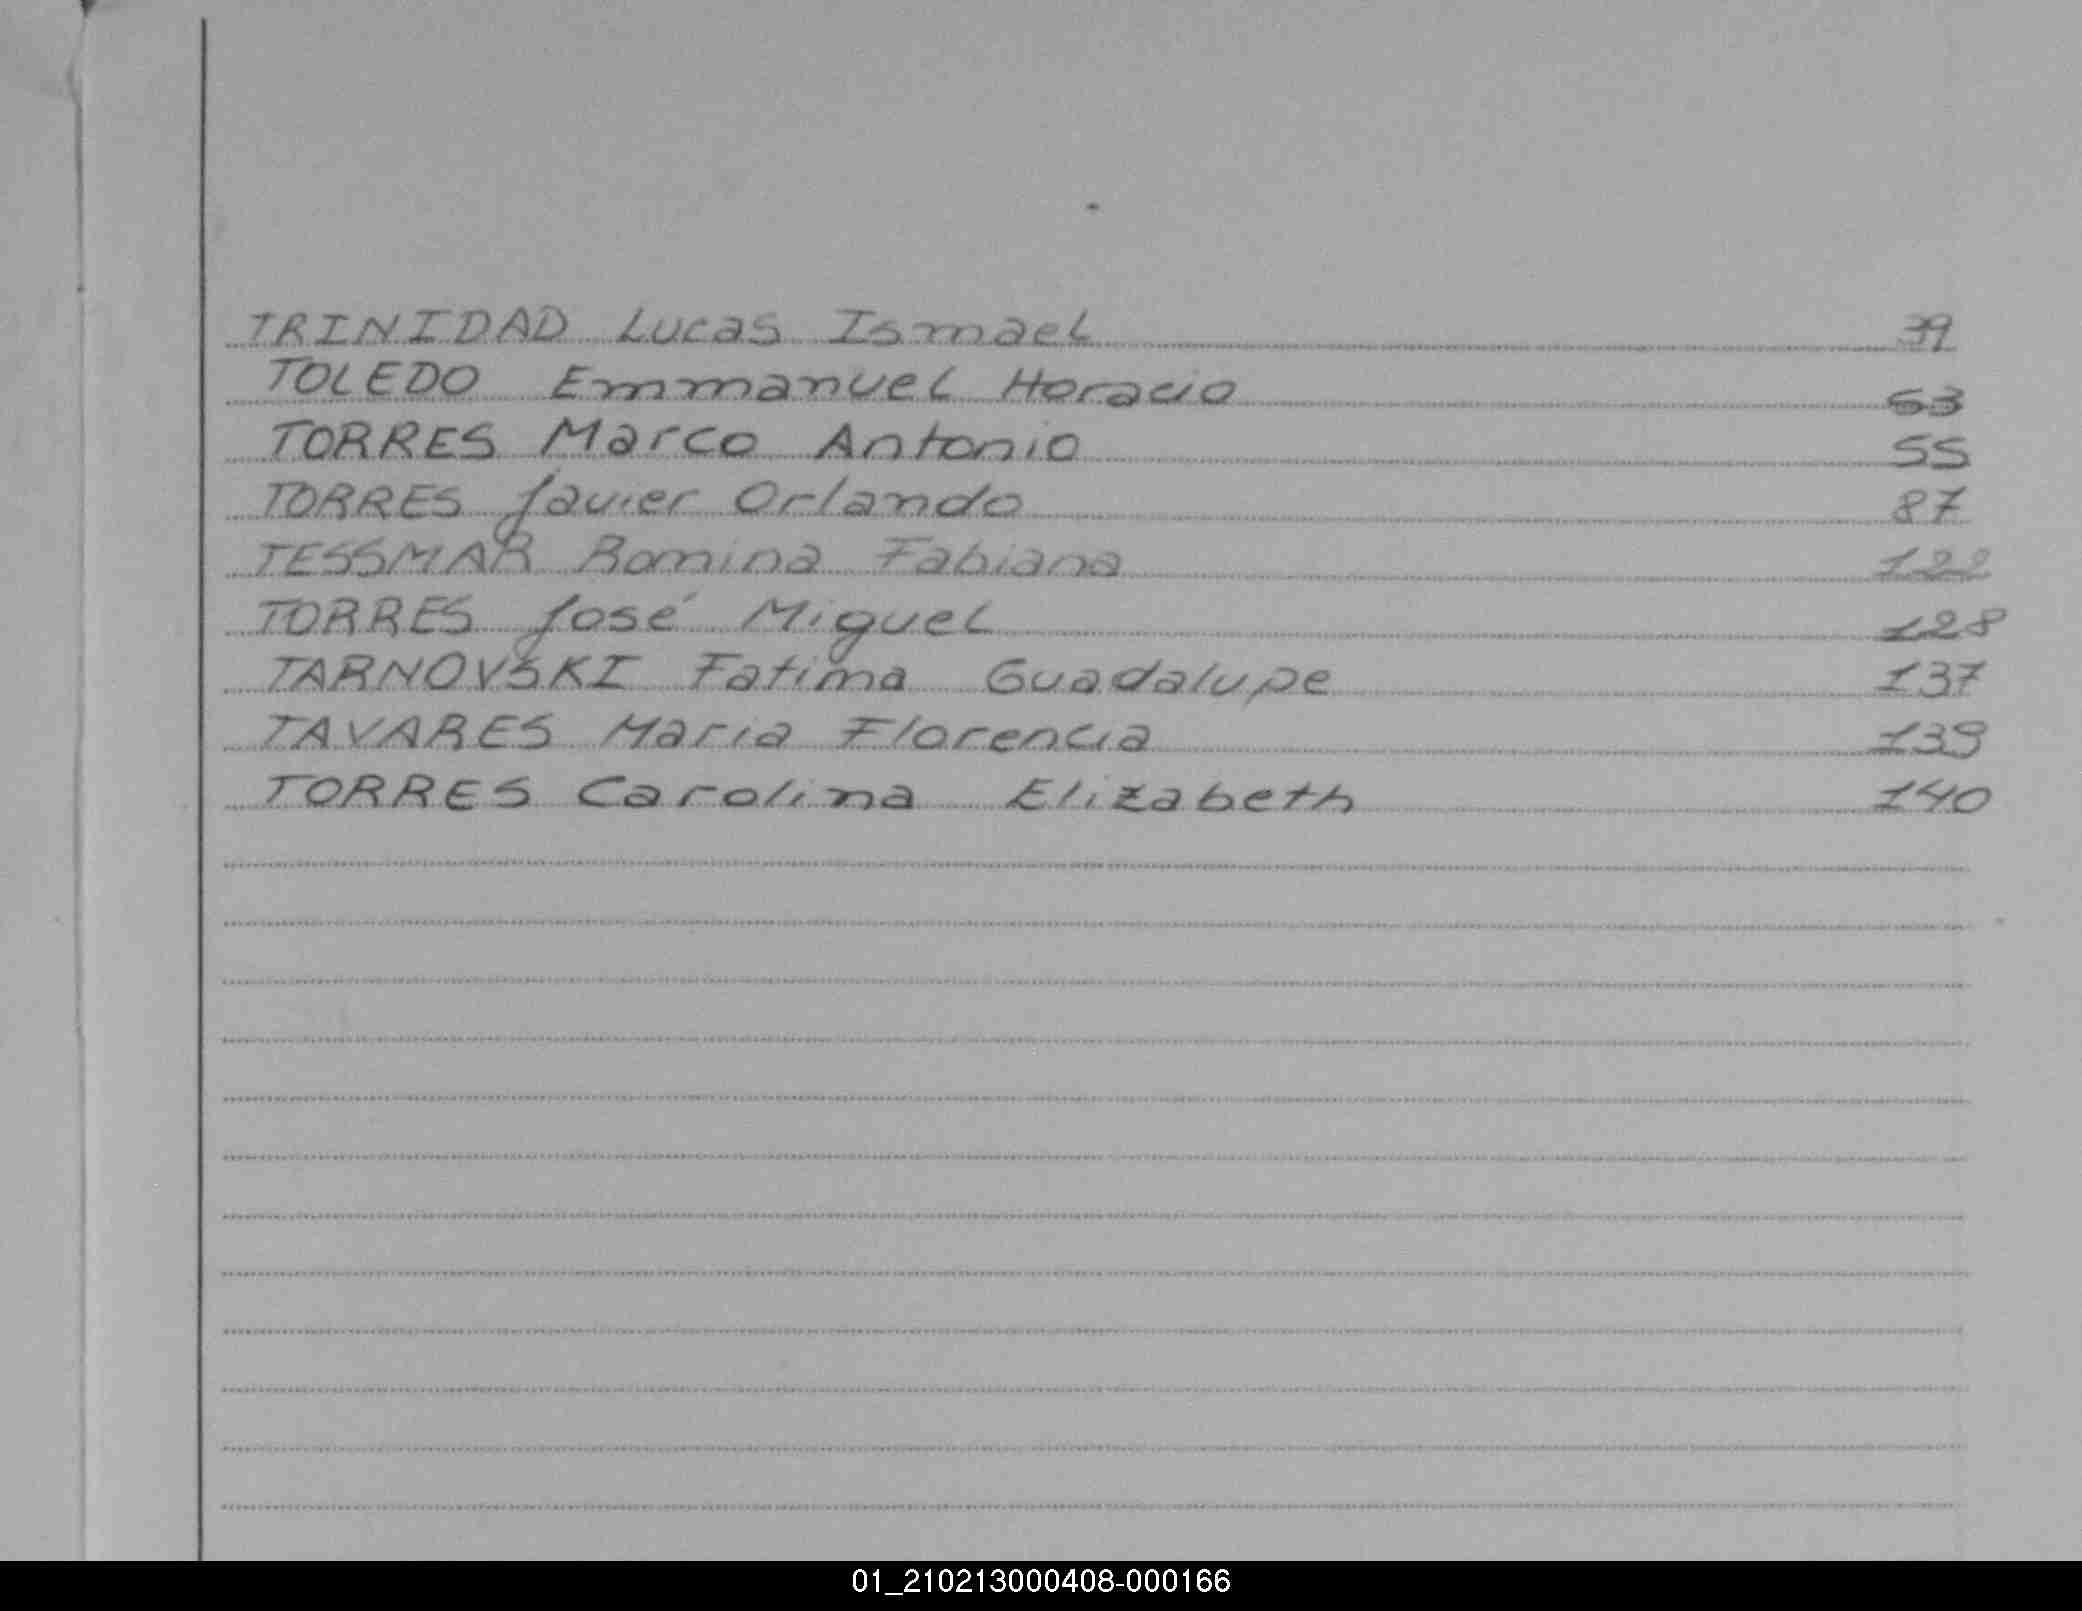 TRINIDAD Lucas Ismael 39
TOLEDO Emmanuel Horacio 53
TORRES Marco Antonio 55
TORRES Javier Orlando 87
TESSMAR Romina Fabiana 122
TORRES José Miguel 128
TARNOVSKI Fatima Guadalupe 137
TAVARES Maria Florencia 139
TORRES Carolina Elizabeth 140
01_210213000408-000166